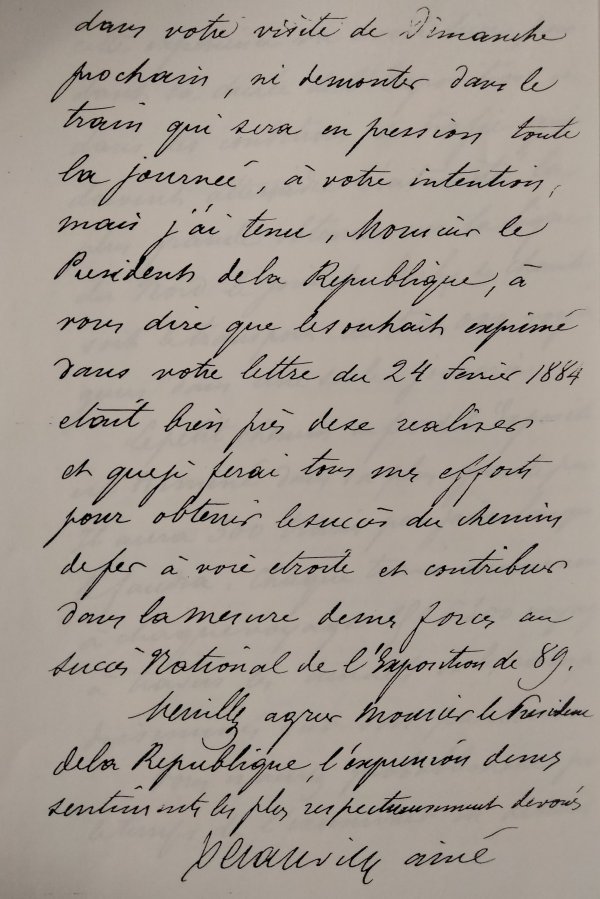 dans votre visite de Dimanche
prochain, ni demonter dans le
train qui sera en pression toute
la journeé, à votre intention,
mais j'ai tenu, Monsieur le
President de la Republique, à
vous dire que le souhait exprimé
dans votre lettre du 24 fevrier 1884
etait bien près de se realiser
et que je ferai tous mes efforts
pour obtenir le succès du chemin
de fer à voie etroite et contribuer
dans la mesure de mes forces au
succès National de l'Exposition de 89.
Veuillez agreer Monsieur le Président
de la Republique, l'expression de mes
sentiments les plus respectueusement devoués
Decauville ainé